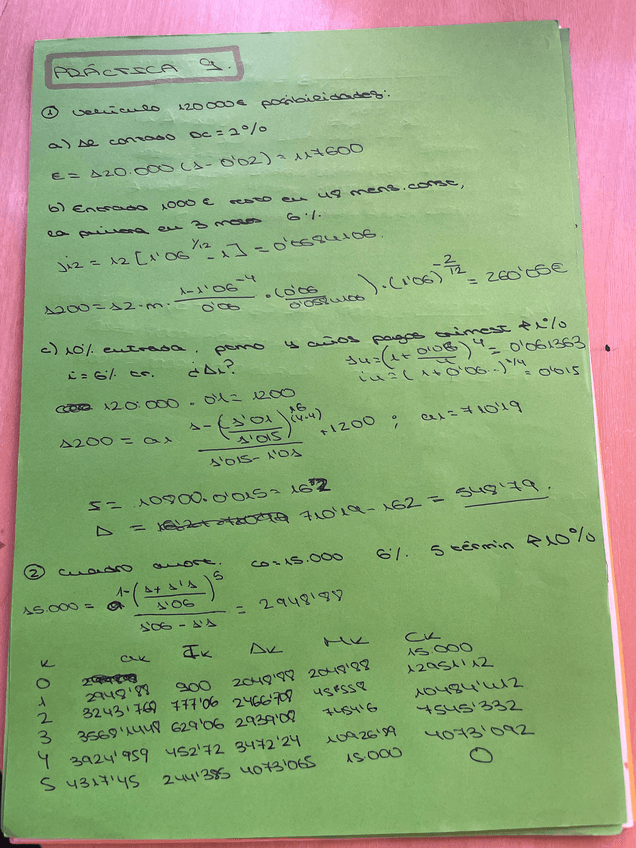 PRÁCTICA 9.
① Vehículo 120000€ posibilidades:
a) Al contado DC = 2%
E = 120.000 (1 - 0'02) = 117600
b) Entrada 1000 € resto en 48 mens. consc,
la primera en 3 meses 6%.
j12 = 12 [1'06^1/12 - 1] = 0'0584106.
1200 = 12·m· (1 - 1'06^-4)/0'06 · (0'06/0'0584106) · (1'06)^-2/12 = 260'05€
c) 10% entrada, 4 años pagos trimest ↑ 1%
i = 6% cn. ¿A1?
i4 = (1 + 0'06/4)^4 = 0'061363
i4 = (1 + 0'06..)^1/4 = 0'015
120.000 · 0'1 = 1200
1200 = a1 (1 - (1'01/1'015)^16 (4·4))/(1'015 - 1'01) + 1200 ; a1 = 710'19
S = 10800·0'015 = 162
A = 710'19 - 162 = 548'79.
② Cuadro amort. C0 = 15.000 6% 5 términ ↑ 10%
15.000 = a (1 - (1+1'1/1'06)^5)/(1'06 - 1'1) = 2948'88
K aK IK AK MK CK
0 15.000
1 2948'88 900 2048'88 2048'88 12951'12
2 3243'768 777'06 2466'708 4515'558 10484'412
3 3568'1448 629'06 2939'08 7454'6 7545'332
4 3924'959 452'72 3472'24 10926'89 4073'092
5 4317'45 244'385 4073'065 15.000 0